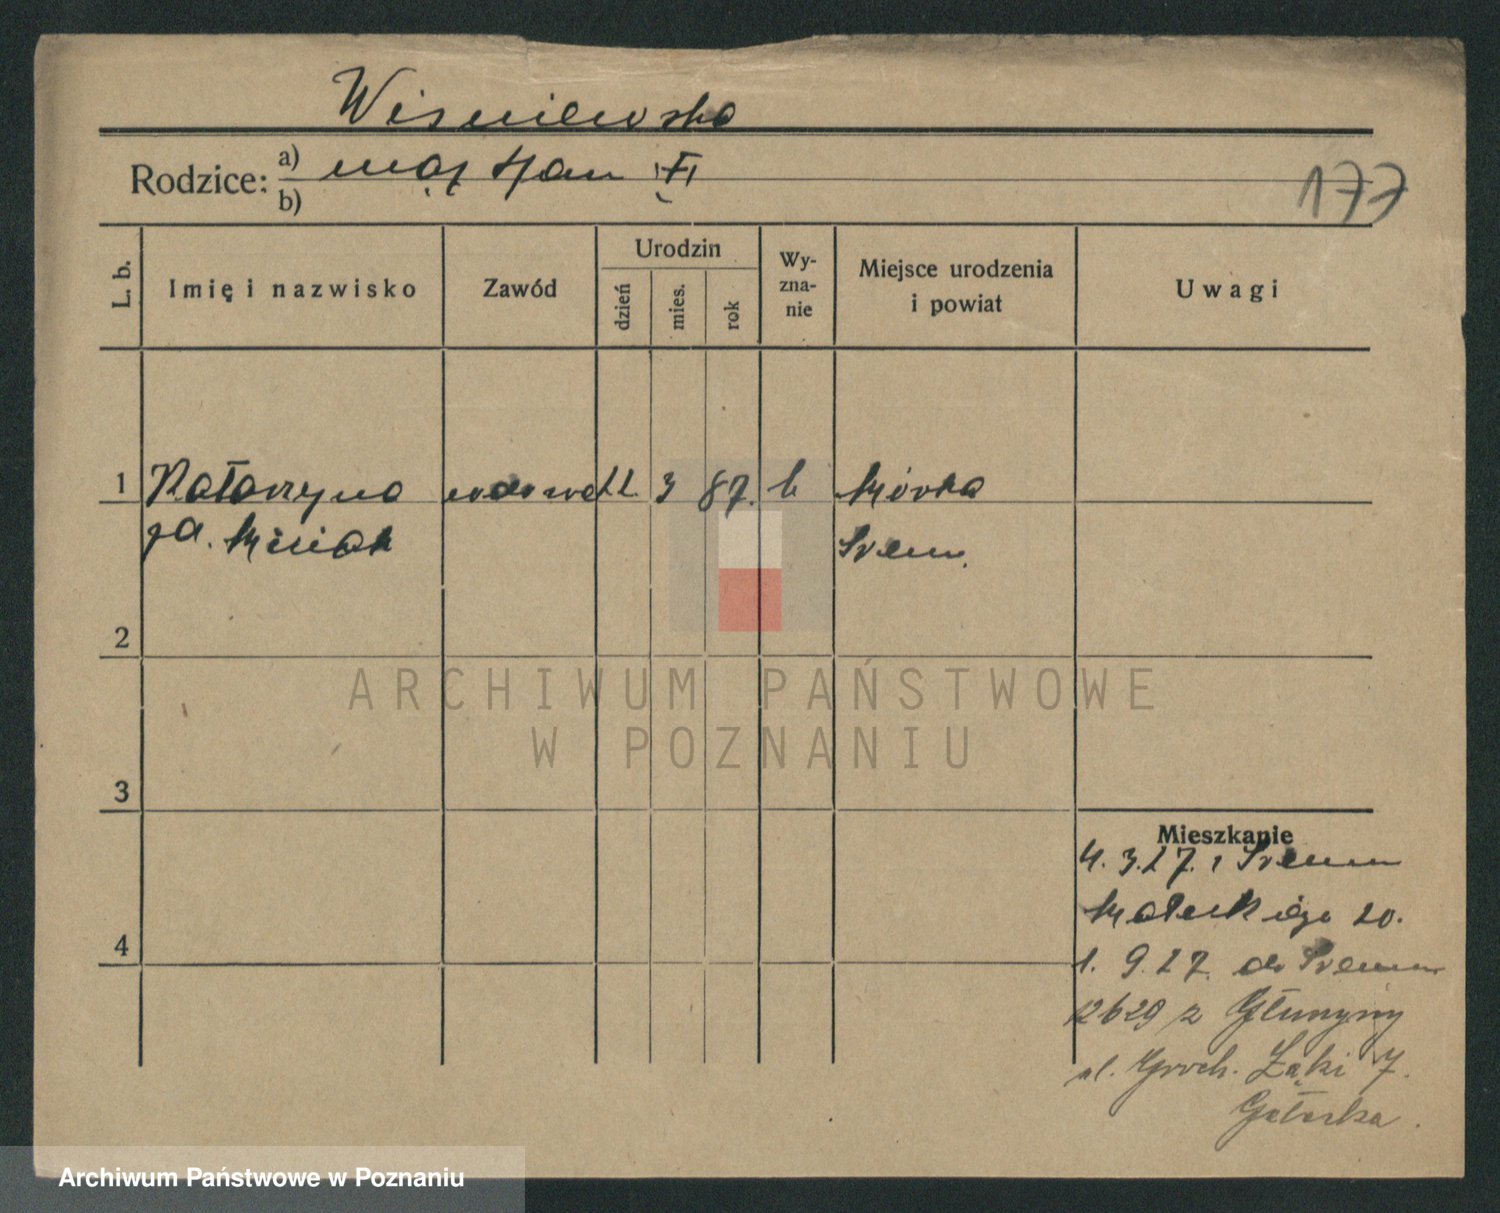 Wiśniewska
Rodzice: a) mąż Jan
b)
177
L. b.
Imię i nazwisko
Zawód
Urodzin
dzień
mies.
rok
Wy-
zna-
nie
Miejsce urodzenia
i powiat
Uwagi
1 Katarzyna wdowa 22 3 87. k Mórka
za. Misiak Śrem.
2
3
4
Mieszkanie
4. 3. 27. z Śremu
Małeckiego 20.
1. 9. 27. do Śremu
12629 z Głuszyny
ul. Groch. Łąki 7.
ARCHIWUM PAŃSTWOWE
W POZNANIU
Archiwum Państwowe w Poznaniu